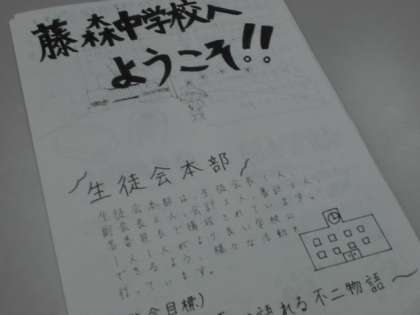 藤森中学校へ
ようこそ!!
生徒会本部
生徒会本部は、生徒会長1人、
副会長2人、会計2人、書記2人、
各委員長で構成されています。
一人一人がより良い学校に
できるよう、様々な活動を
行っています。
会目標)
語れる不二物語〜